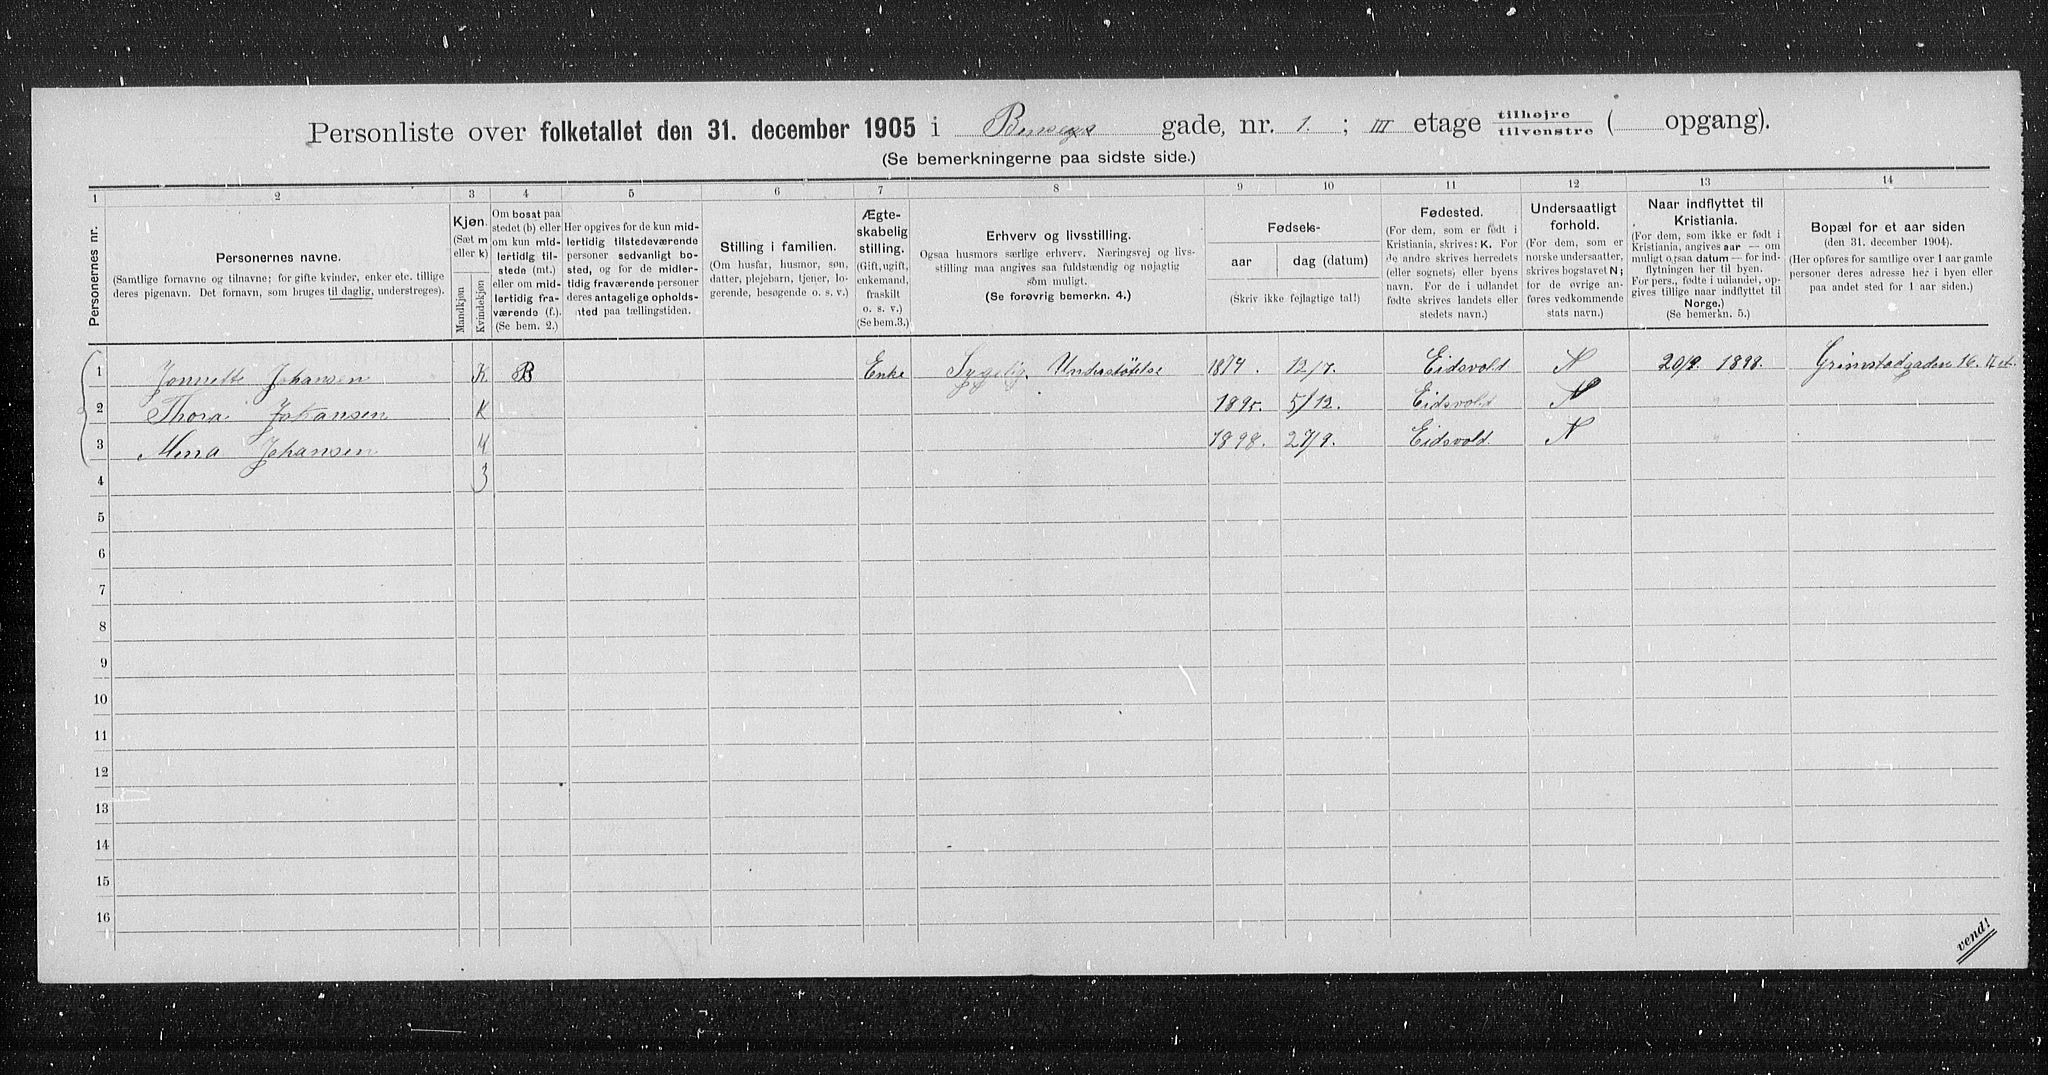 Personliste over folketallet den 31. december 1905 i Bensegs gade, nr. 1. ; III etage tilhøjre tilvenstre ( opgang).
(Se bemerkningerne paa sidste side.)
1 2 3 4 5 6 7 8 9 10 11 12 13 14
Personernes nr.
Personernes navne.
(Samtlige fornavne og tilnavne; for gifte kvinder, enker etc. tillige
deres pigenavn. Det fornavn, som bruges til daglig, understreges).
Kjøn.
(Sæt m
eller k)
Mandkjøn
Kvindekjøn
Om bosat paa
stedet (b) eller
om kun mid-
lertidig til-
stede (mt.)
eller om mid-
lertidig fra-
værende (f.).
(Se bem. 2.)
Her opgives for de kun mid-
lertidig tilstedeværende
personer sedvanlig bo-
sted, og for de midler-
tidig fraværende personer
deres antagelige opholds-
sted paa tællingstiden.
Stilling i familien.
(Om husfar, husmor, søn,
datter, plejebarn, tjener, lo-
gerende, besøgende o. s. v.)
Ægte-
skabelig
stilling.
(Gift, ugift,
enkemand,
fraskilt
o. s. v.)
(Se bem. 3.)
Erhverv og livsstilling.
Ogsaa husmors særlige erhverv. Næringsvej og livs-
stilling maa angives saa fuldstændig og nøjagtig
som muligt.
(Se forøvrig bemerkn. 4.)
Fødsels-
aar
dag (datum)
(Skriv ikke fejlagtige tal!)
Fødested.
(For dem, som er født i
Kristiania, skrives: K. For
de andre skrives herredets
(eller sognets) eller byens
navn. For de i udlandet
fødte skrives landets eller
stedets navn.)
Undersaatligt
forhold.
(For dem, som er
norske undersaatter,
skrives bogstavet N;
for de øvrige an-
føres vedkommende
stats navn.)
Naar indflyttet til
Kristiania.
(For dem, som ikke er født i
Kristiania, angives aar — om
muligt ogsaa datum — for ind-
flytningen her til byen.
For pers., fødte i udlandet, op-
gives tillige naar indflyttet til
Norge.)
(Se bemerkn. 5.)
Bopæl for et aar siden
(den 31. december 1904).
(Her opføres for samtlige over 1 aar gamle
personer deres adresse her i byen eller
paa andet sted for 1 aar siden.)
1 Jonnette Johansen K B Enke Sygelig, Understöttelse 1874. 12/7. Eidsvold N 20/9. 1898. Grimstadgaden 16. II et.
2 Thora Johansen K 1895. 5/12. Eidsvold N "
3 Mina Johansen K 1898. 27/9. Eidsvold N "
4 3
5
6
7
8
9
10
11
12
13
14
15
16
vend!